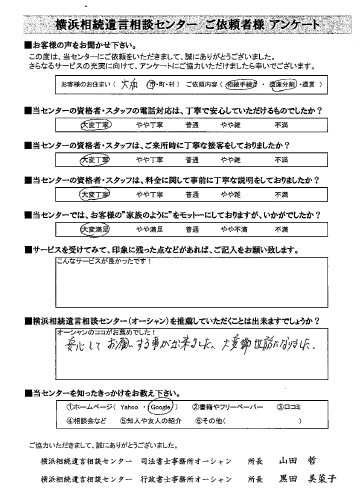 横浜相続遺言相談センター ご依頼者様 アンケート
■お客様の声をお聞かせ下さい。
この度は、当センターにご依頼をいただきまして、誠にありがとうございました。
さらなるサービスの充実に向けて、アンケートにご協力いただけましたら幸いでございます。
お客様のお住まい（ 大和 市・町・村 ） ご依頼内容（ 相続手続き ・ 遺産分割 ・ 遺言 ）
■当センターの資格者・スタッフの電話対応は、丁寧で安心していただけるものでしたか？
大変丁寧 やや丁寧 普通 やや雑 不満
■当センターの資格者・スタッフは、ご来所時に丁寧な接客をしておりましたか？
大変丁寧 やや丁寧 普通 やや雑 不満
■当センターの資格者・スタッフは、料金に関して事前に丁寧な説明をしておりましたか？
大変丁寧 やや丁寧 普通 やや雑 不満
■当センターでは、お客様の"家族のように"をモットーにしておりますが、いかがでしたか？
大変満足 やや満足 普通 やや不満 不満
■サービスを受けてみて、印象に残った点などがあれば、ご記入をお願い致します。
こんなサービスが良かったです！
■横浜相続遺言相談センター（オーシャン）を推薦していただくことは出来ますでしょうか？
オーシャンのココがお薦めでした！
安心してお願いする事が出来ました。大変御世話になりました。
■当センターを知ったきっかけをお教え下さい。
①ホームページ（ Yahoo ・ Google ） ②書籍やフリーペーパー ③口コミ
④相談会など ⑤知人や友人の紹介 ⑥その他（ ）
ご協力いただきまして、誠にありがとうございました。
横浜相続遺言相談センター 司法書士事務所オーシャン 所長 山田 哲
横浜相続遺言相談センター 行政書士事務所オーシャン 所長 黒田 美菜子